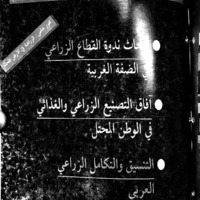 ● أبحاث ندوة القطاع الزراعي
في الضفة الغربية
● آفاق التصنيع الزراعي والغذائي
في الوطن المحتل
● التنسيق والتكامل الزراعي
العربي